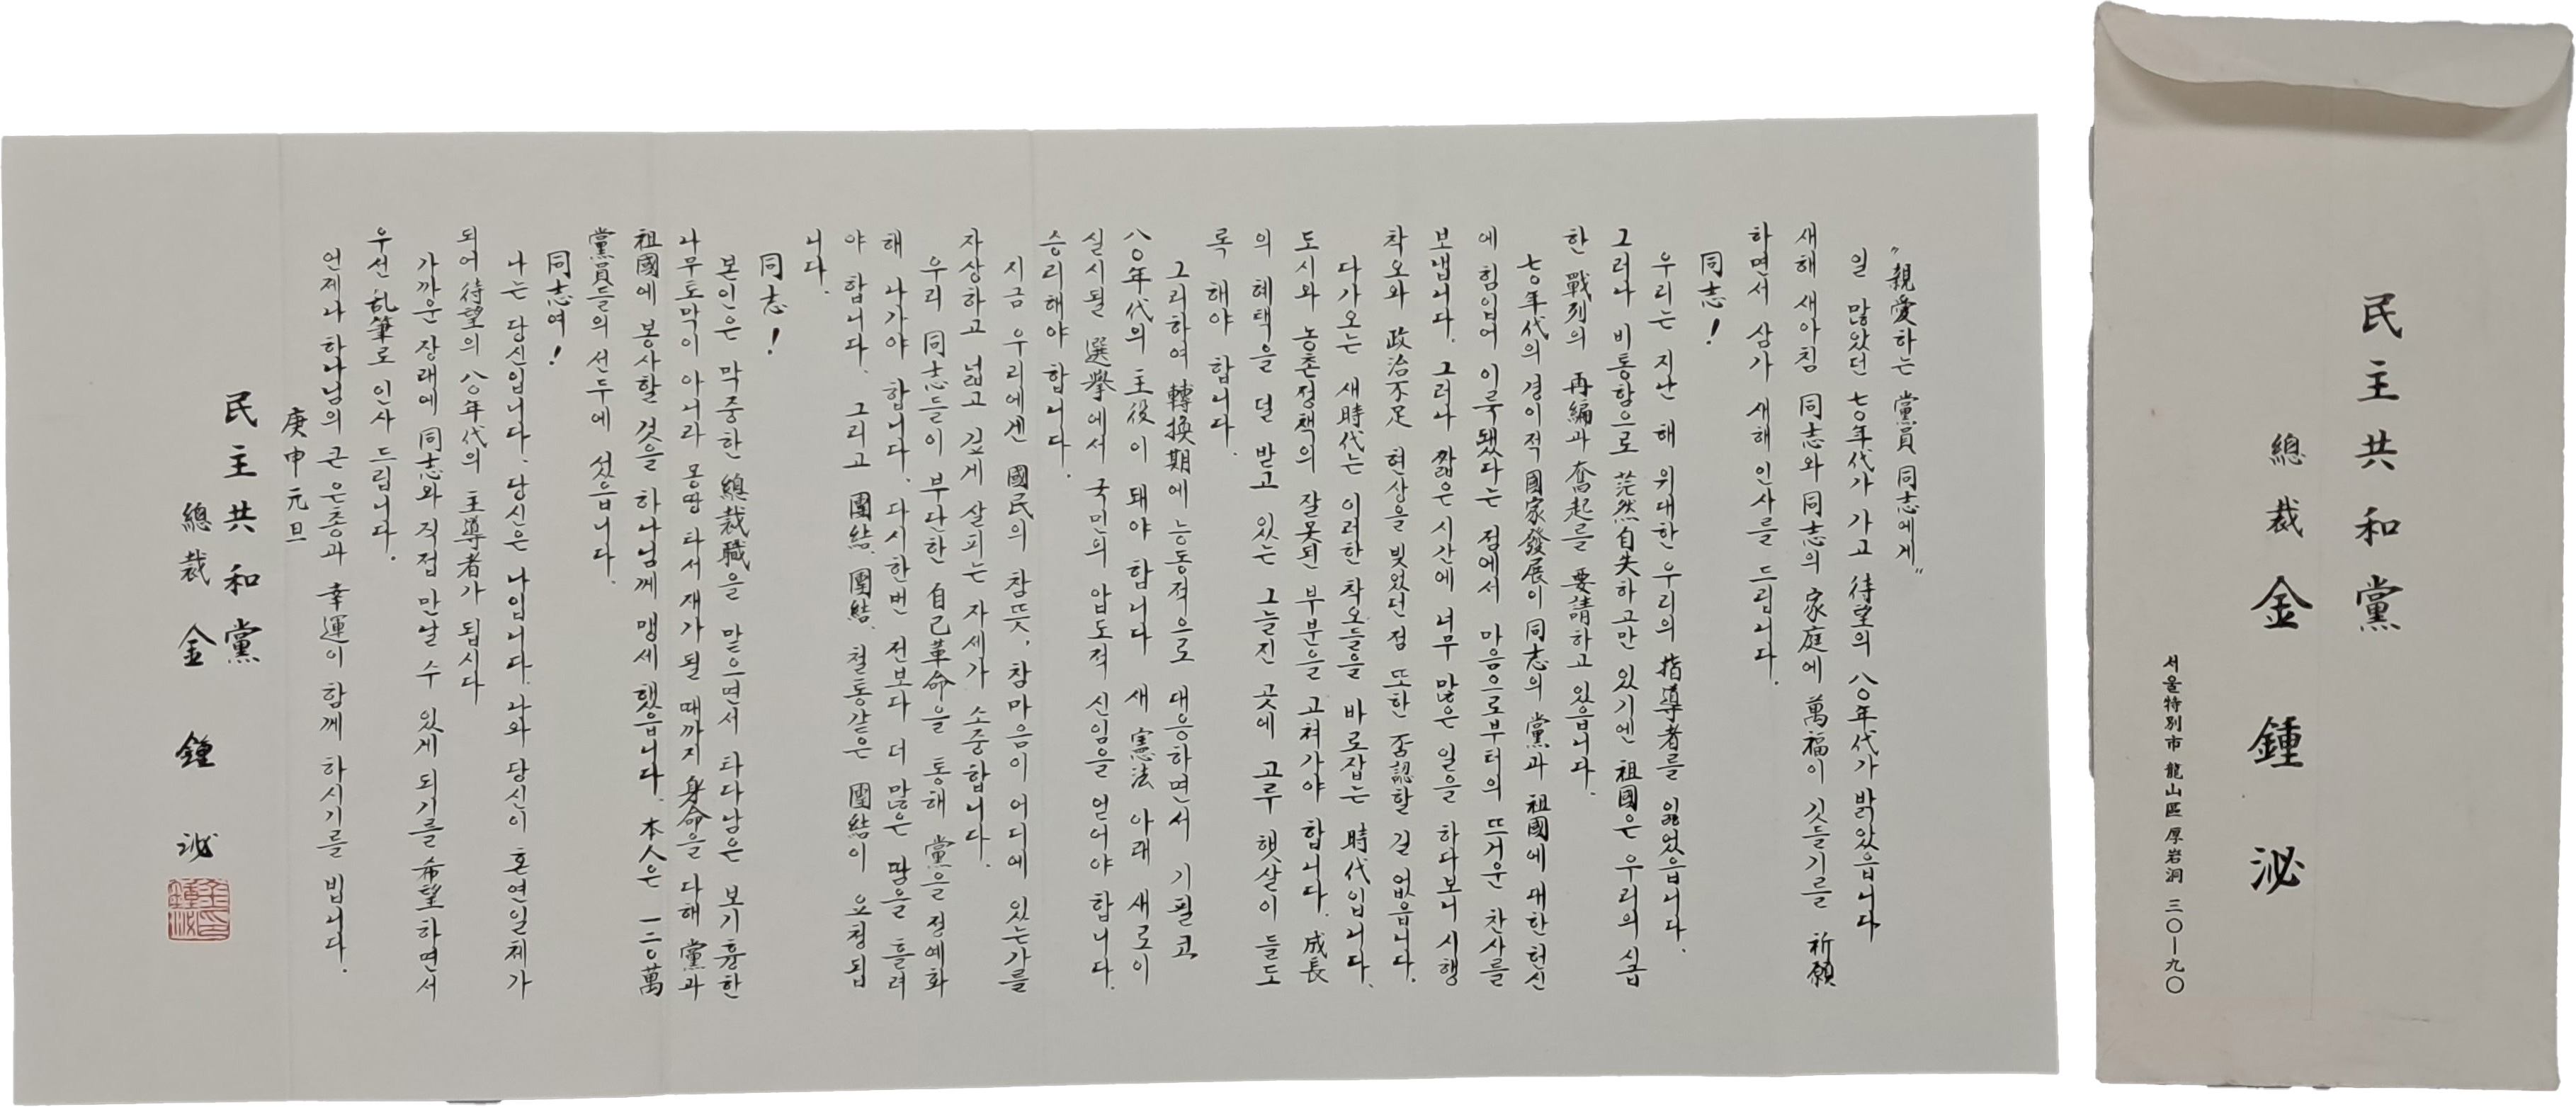 "親愛하는 黨員 同志에게"
일 많았던 七○年代가 가고 待望의 八○年代가 밝았읍니다
새해 새아침 同志와 同志의 家庭에 萬福이 깃들기를 祈願
하면서 삼가 새해 인사를 드립니다.
同志!
우리는 지난 해 위대한 우리의 指導者를 잃었읍니다.
그러나 비통함으로 茫然自失하고만 있기엔 祖國은 우리의 시급
한 戰列의 再編과 奮起를 要請하고 있읍니다.
七○年代의 경이적 國家發展이 同志의 黨과 祖國에 대한 헌신
에 힘입어 이룩됐다는 점에서 마음으로부터의 뜨거운 찬사를
보냅니다. 그러나 짧은 시간에 너무 많은 일을 하다보니 시행
착오와 政治不足 현상을 빚었던 점 또한 否認할 길 없읍니다.
다가오는 새時代는 이러한 착오들을 바로잡는 時代입니다.
도시와 농촌정책의 잘못된 부분을 고쳐가야 합니다. 成長
의 혜택을 덜 받고 있는 그늘진 곳에 고루 햇살이 들도
록 해야 합니다.
그리하여 轉換期에 능동적으로 대응하면서 기필코,
八○年代의 主役이 돼야 합니다 새 憲法 아래 새로이
실시될 選擧에서 국민의 압도적 신임을 얻어야 합니다.
승리해야 합니다.
지금 우리에겐 國民의 참뜻, 참마음이 어디에 있는가를
자상하고 넓고 깊게 살피는 자세가 소중합니다.
우리 同志들이 부단한 自己革命을 통해 黨을 정예화
해 나가야 합니다. 다시한번 전보다 더 많은 땀을 흘려
야 합니다. 그리고 團結, 團結, 철통같은 團結이 요청됩
니다.
同志!
본인은 막중한 總裁職을 맡으면서 타다남은 보기흉한
나무토막이 아니라 몽땅 타서 재가 될 때까지 身命을 다해 黨과
祖國에 봉사할 것을 하나님께 맹세 했읍니다. 本人은 一二○萬
黨員들의 선두에 섰읍니다.
同志여!
나는 당신입니다. 당신은 나입니다. 나와 당신이 혼연일체가
되어 待望의 八○年代의 主導者가 됩시다
가까운 장래에 同志와 직접 만날 수 있게 되기를 希望하면서
우선 乱筆로 인사 드립니다.
언제나 하나님의 큰 은총과 幸運이 함께 하시기를 빕니다.
庚申 元旦
民主共和黨
總裁 金鍾泌
金鍾泌印
民主共和黨
總裁 金鍾泌
서울特別市 龍山區 厚岩洞 三○─九○